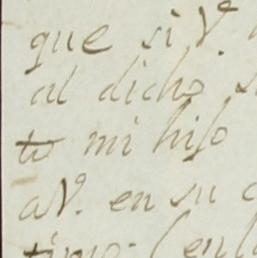 que si V.e
al dicho
to mi hijo
a V. en su
timo